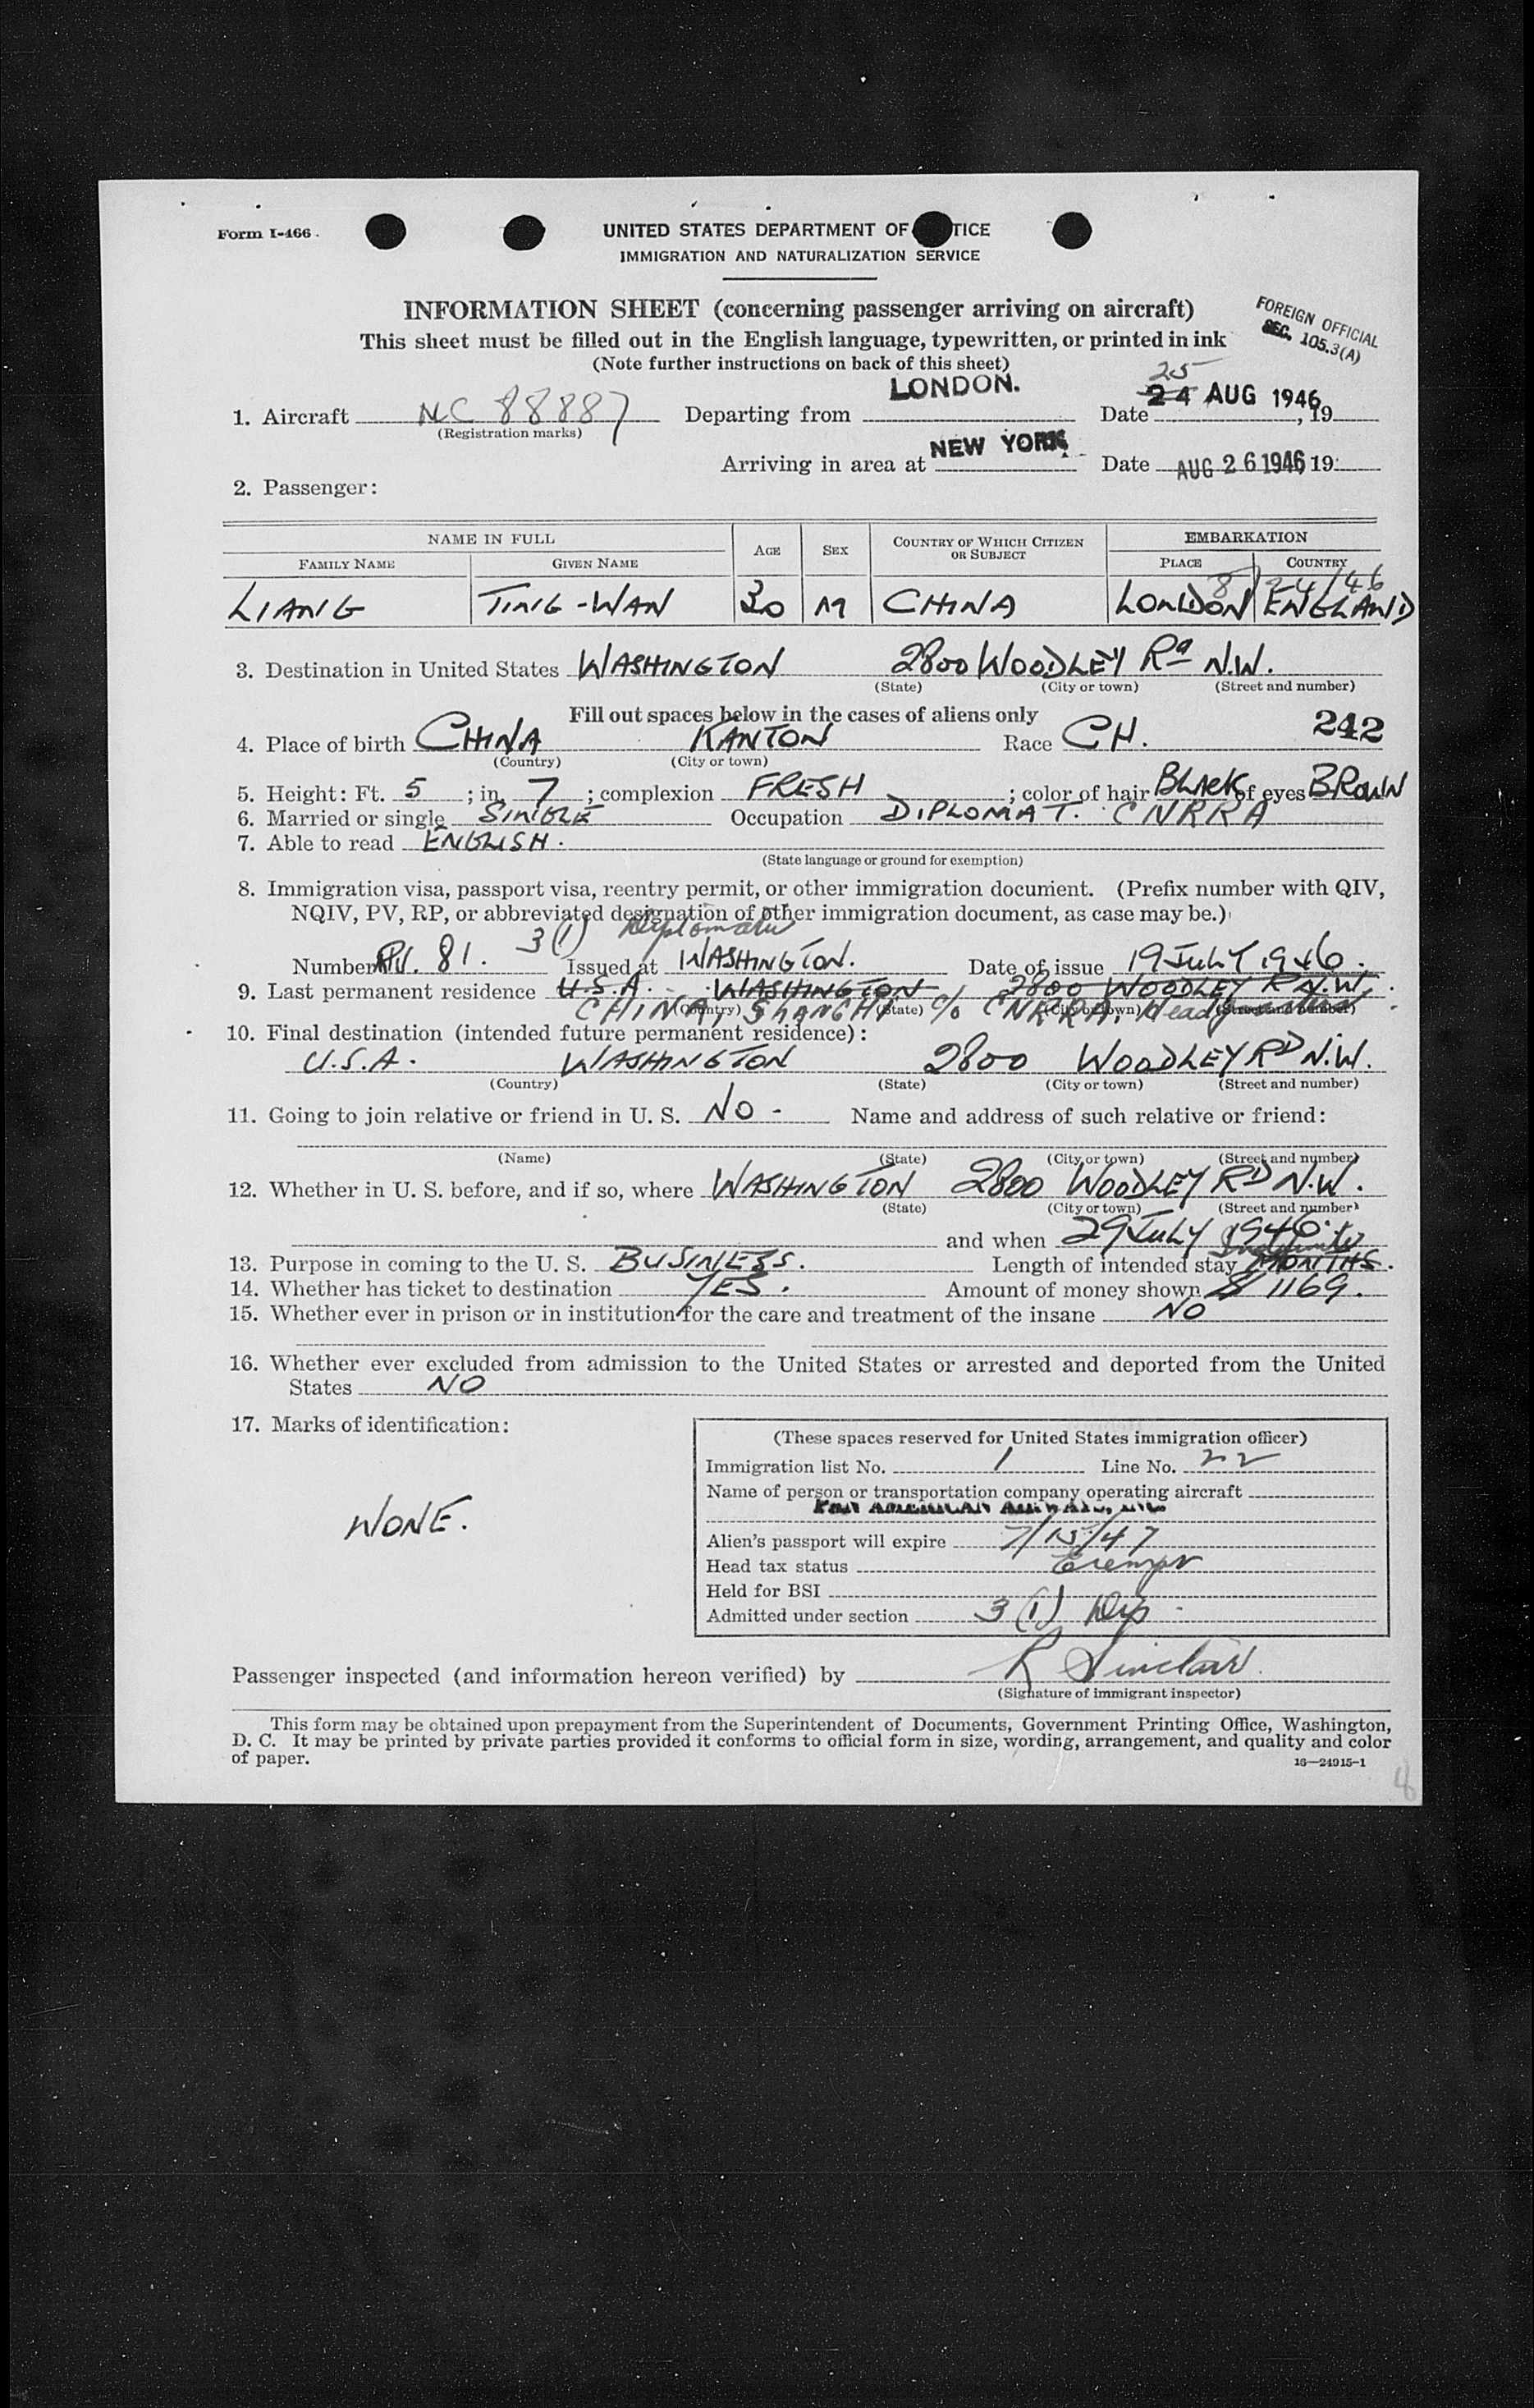 Form I-466
UNITED STATES DEPARTMENT OF TICE
IMMIGRATION AND NATURALIZATION SERVICE
INFORMATION SHEET (concerning passenger arriving on aircraft)
FOREIGN OFFICIAL
SEC. 105.3(A)
This sheet must be filled out in the English language, typewritten, or printed in ink
(Note further instructions on back of this sheet)
25
1. Aircraft NC 88887 Departing from LONDON. Date 24 AUG 1946, 19
(Registration marks)
Arriving in area at NEW YORK. Date AUG 26 1946 19
2. Passenger:
NAME IN FULL AGE SEX COUNTRY OF WHICH CITIZEN OR SUBJECT EMBARKATION
FAMILY NAME GIVEN NAME PLACE COUNTRY
8/24/46
LIANG TING-WAN 30 M CHINA LONDON ENGLAND
3. Destination in United States WASHINGTON 2800 WOODLEY Rd N.W.
(State) (City or town) (Street and number)
Fill out spaces below in the cases of aliens only
242
4. Place of birth CHINA KANTON Race CH.
(Country) (City or town)
5. Height: Ft. 5; in. 7; complexion FRESH; color of hair BLACK of eyes BROWN
6. Married or single SINGLE Occupation DIPLOMAT. CNRRA
7. Able to read ENGLISH.
(State language or ground for exemption)
8. Immigration visa, passport visa, reentry permit, or other immigration document. (Prefix number with QIV,
NQIV, PV, RP, or abbreviated designation of other immigration document, as case may be.)
3(1) Diplomatic
Number P.V. 81. Issued at WASHINGTON. Date of issue 19 JULY 1946.
9. Last permanent residence U.S.A. WASHINGTON 2800 WOODLEY R N.W.
CHINA, SHANGHI c/o CNRRA,
(Country) (State) (City or town) (Street and number)
10. Final destination (intended future permanent residence):
U.S.A. WASHINGTON 2800 WOODLEY RD N.W.
(Country) (State) (City or town) (Street and number)
11. Going to join relative or friend in U. S. NO - Name and address of such relative or friend:
(Name) (State) (City or town) (Street and number)
12. Whether in U. S. before, and if so, where WASHINGTON 2800 WOODLEY RD N.W.
(State) (City or town) (Street and number)
and when 29 JULY 1946.
13. Purpose in coming to the U. S. BUSINESS. Length of intended stay MONTHS.
14. Whether has ticket to destination YES. Amount of money shown $ 1169.
15. Whether ever in prison or in institution for the care and treatment of the insane NO
16. Whether ever excluded from admission to the United States or arrested and deported from the United
States NO
17. Marks of identification:
NONE.
(These spaces reserved for United States immigration officer)
Immigration list No. 1 Line No. 22
Name of person or transportation company operating aircraft
PAN AMERICAN AIRWAYS, INC
Alien's passport will expire 7/15/47
Head tax status Exempt
Held for BSI
Admitted under section 3(1) Dip -
Passenger inspected (and information hereon verified) by R Sinclair
(Signature of immigrant inspector)
This form may be obtained upon prepayment from the Superintendent of Documents, Government Printing Office, Washington,
D. C. It may be printed by private parties provided it conforms to official form in size, wording, arrangement, and quality and color
of paper.
16—24915-1